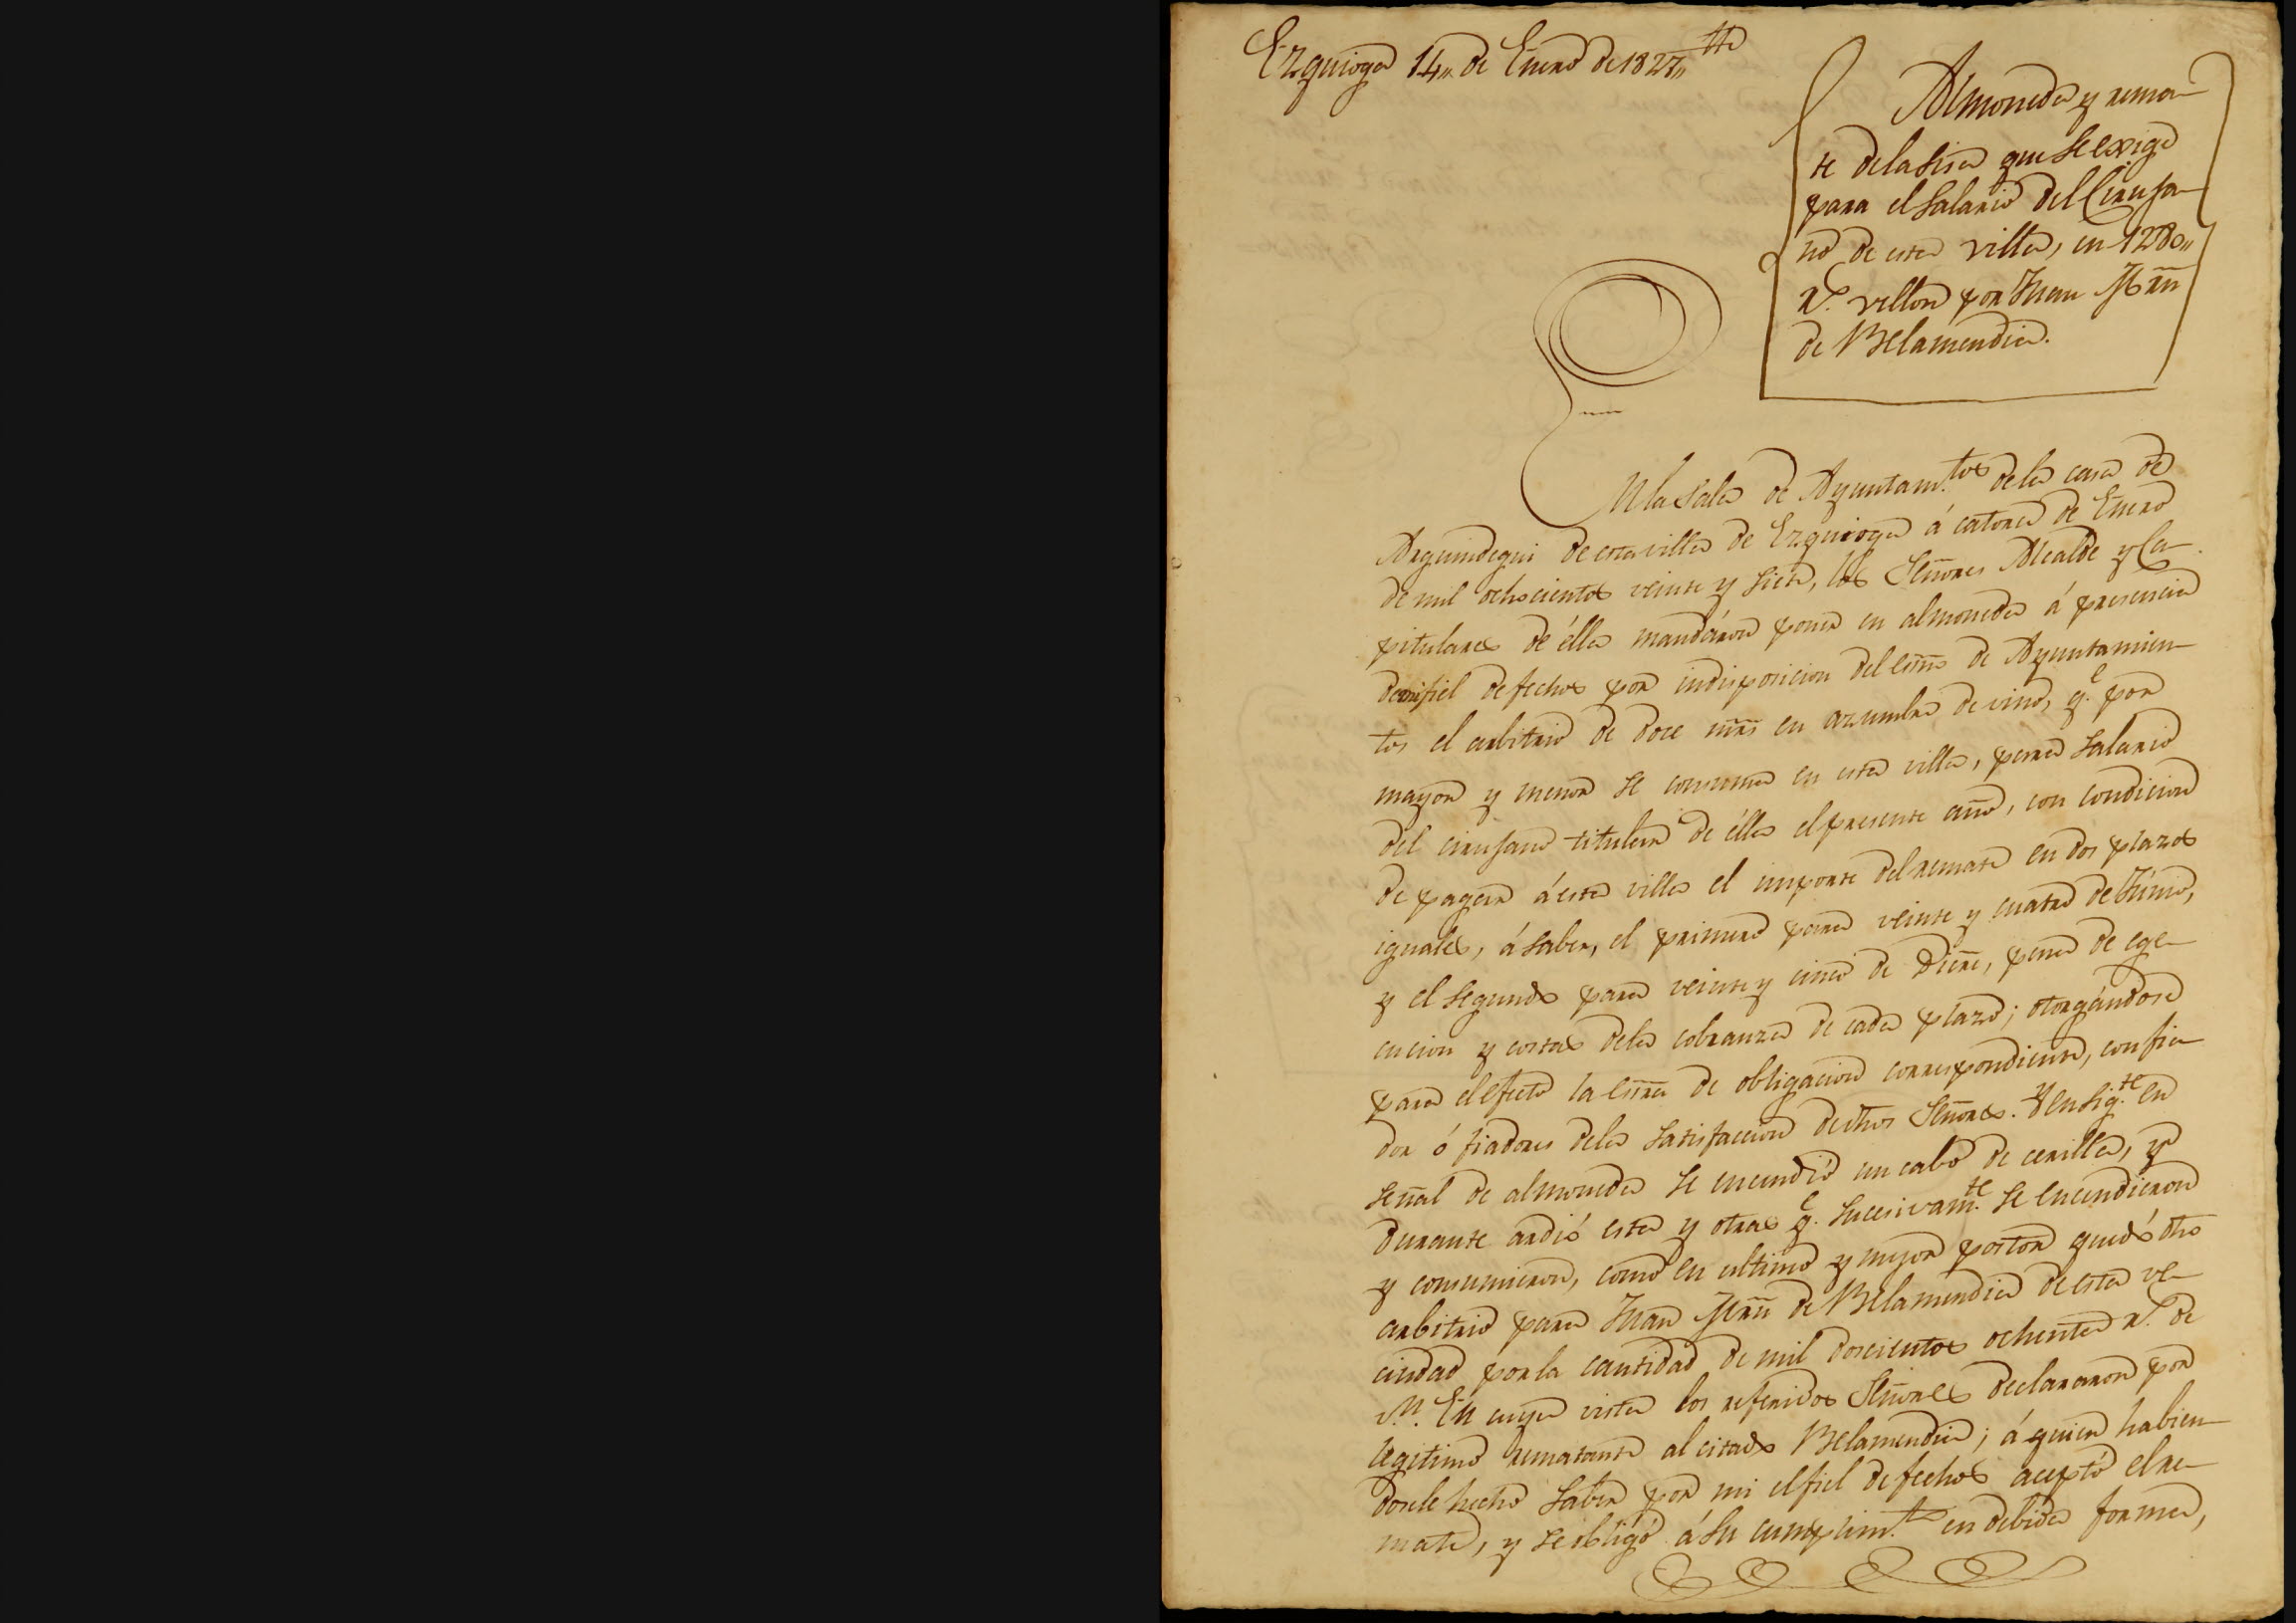 Ezquioga 14,, de Enero de 1827,,
Almoneda y rema-
te dela sisa que se exige
para el salario del Ciruja-
no de esta villa, en 1280,,
r.s vellon por Juan
de Belamendia.
En la sala de Ayuntam.tos dela casa de
Arguindegui de esta villa de Ezquioga á catorce de Enero
de mil ochocientos veinte y siete, los Señores Alcalde y Ca-
pitulares de élla mandáron poner en almoneda á presencia
de mi fiel de fechos por indisposicion del essno de Ayuntamien-
tos el arbitrio de doce mrs en azumbre de vino, q.e por
mayor y menor se consuma en esta villa, para salario
del cirujano titular de élla el presente año, con condicion
de pagar á esta villa el importe del remate en dos plazos
iguales, á saber, el primero para veinte y cuatro de Június,
y el segundo para veinte y cinco de Dicre, pena de ege-
cucion y costas dela cobranza de cada plazo; otorgándose
para el efecto la essra de obligacion correspondiente, con fia-
dor ó fiadores dela satisfaccion de dhos Señores. Y en sig.te en
señal de almoneda se encendió un cabo de cerilla, y
durante ardió esta y otras q.e sucesivam.te se encendieron
y consumieron, como en ultimo y mejor postor quedó dho
arbitrio para Juan de Belamendia de esta ve-
cindad por la cantidad de mil doscientos ochenta r.s de
v.n En cuya vista los referidos Señores declararon por
legitimo rematante al citado Belamendia; á quien habien-
dosele hecho saber por mi el fiel de fechos aceptó el re-
mate, y se obligó á su cumplim.to en debida forma,